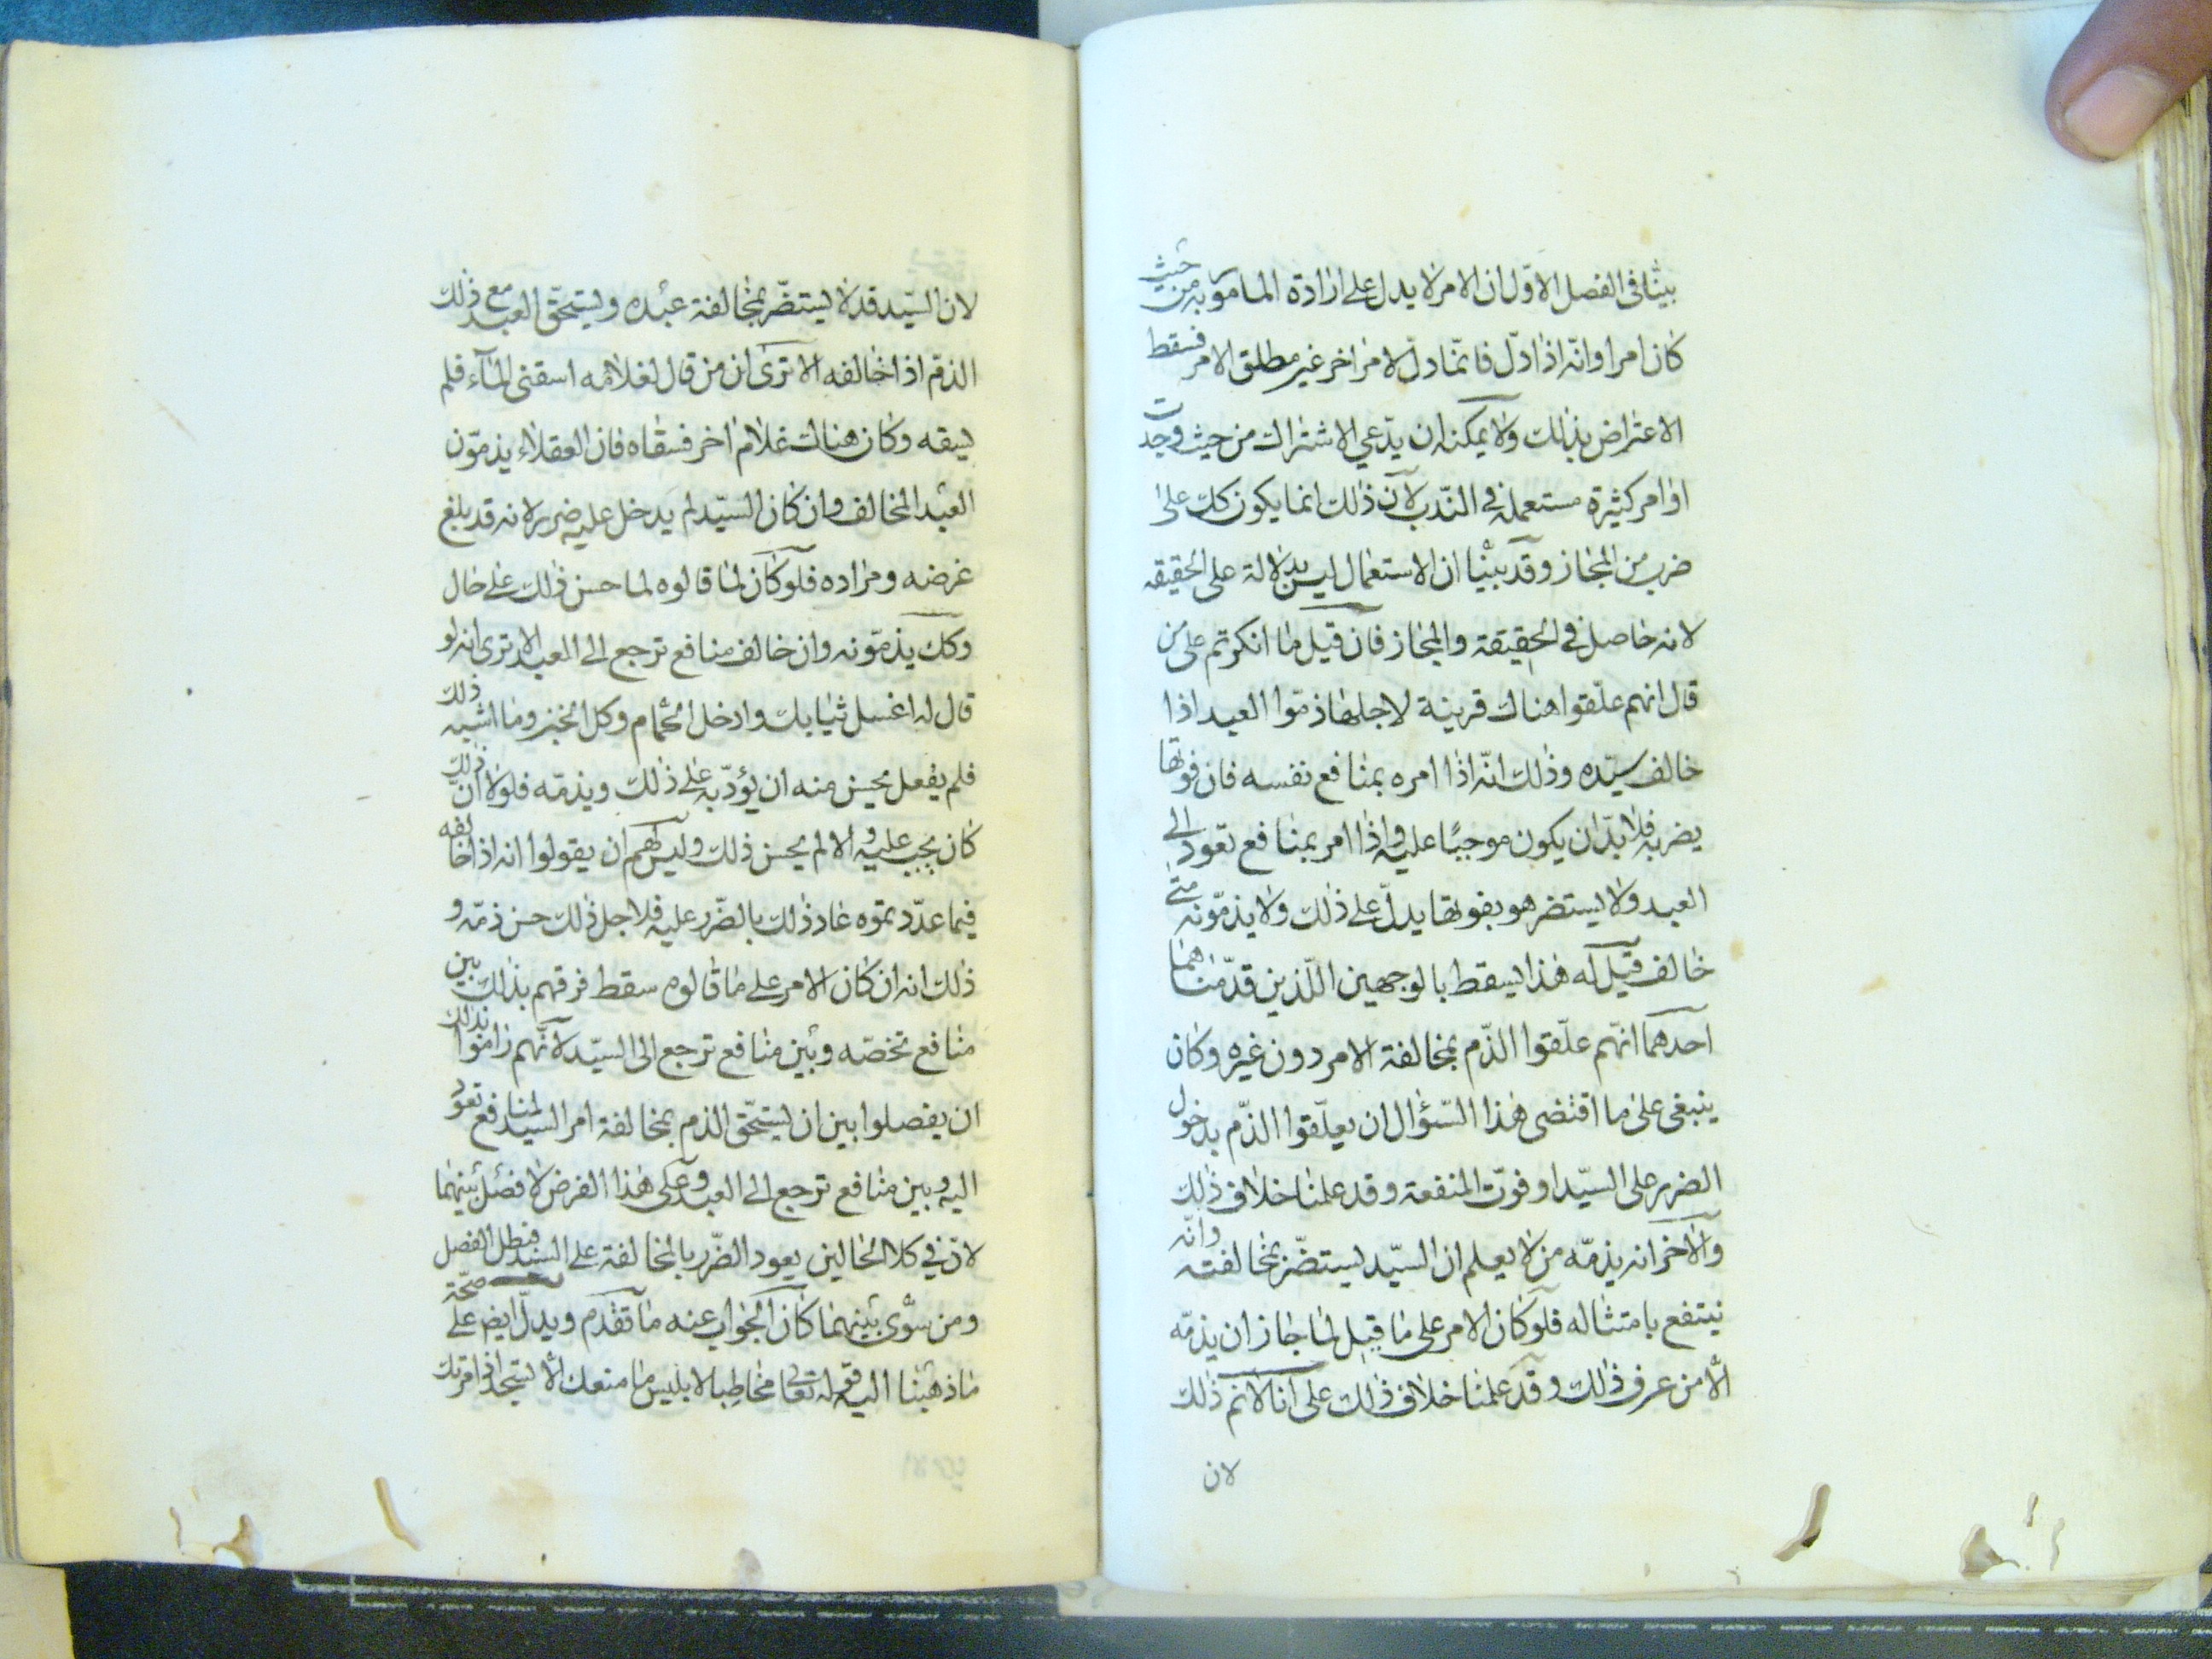 بينّا فى الفصل الاوّل ان الامر لا يدل على ارادة المامور به من حيث
كان امرا وانّه اذا دلّ فانّما دلّ لامر اخر غير مطلق الامر فسقط
الاعتراض بذلك ولا يمكنه ان يدّعي الاشتراك من حيث وجدت
اوامر كثيرة مستعملة في النّدب لانّ ذلك انما يكون كك على
ضرب من المجاز وقد بينّا ان الاستعمال ليس بدلالة على الحقيقه
لانه حاصل في الحقيقة والمجاز فان قيل ما انكرتم على من
قال انهم علّقوا هناك قرينة لاجلها ذمّوا العبد اذا
خالف سيّده وذلك انّه اذا امره بمنافع نفسه فان فوتها
يضر به فلا بدّ ان يكون موجبًا عليه واذا امر بمنافع تعود الى
العبد ولا يستضر هو بفوتها يدلّ على ذلك ولا يذمّونه متى
خالف قيل له هذا يسقط بالوجهين اللّذين قدّمناهما
احدهما انّهم علّقوا الذّم بمخالفة الامر دون غيره وكان
ينبغى على ما اقتضى هذا السّؤال ان يعلّقوا الذّم بدخول
الضرر على السيّد او فوت المنفعة وقد علمنا خلاف ذلك
والاخر انه يذمّه من لا يعلم ان السيّد يستضّر بمخالفته وانّه
ينتفع بامتثاله فلو كان الامر على ما قيل لما جاز ان يذمّه
الّا من عرف ذلك وقد علمنا خلاف ذلك على انا لا نم ذلك
لان
لان السيّد قد لا يستضّر بمخالفة عبده ويستحّق العبد مع ذلك
الذمّ اذا خالفه الا ترى ان من قال لغلامه اسقنى المآء فلم
يسقه وكان هناك غلام اخر فسقاه فان العقلاء يذمّون
العبد المخالف وان كان السيّد لم يدخل عليه ضرر لانه قد بلغ
غرضه ومراده فلو كان لما قالوه لما حسن ذلك على حال
وكك يذمّونه وان خالف منافع ترجع الى العبد الا ترى انه لو
قال له اغسل ثيابك وادخل الحمّام وكل الخبز وما اشبه ذلك
فلم يفعل يحسن منه ان يؤدّبه على ذلك ويذمّه فلولا ان ذلك
كان يجب عليه والا لم يحسن ذلك وليس لهم ان يقولوا انه اذا خالفه
فيما عدّدتموه عاد ذلك بالضّرر عليه فلاجل ذلك حسن ذمّه و
ذلك انه ان كان الامر على ما قالوه سقط فرقهم بذلك بين
منافع تخصّه وبين منافع ترجع الى السيّد لانّهم راموا بذلك
ان يفصلوا بين ان يستحّق الذم بمخالفة امر السيد لمنافع تعود
اليه وبين منافع ترجع الى العبد وعلى هذا الفرض لا فصل بينهما
لانّ في كلا الحالين يعود الضّرر بالمخالفة على السيّد فبطل الفصل
ومن سوّى بينهما كان الجواب عنه ما تقدم ويدلّ ايض على صحّة
ما ذهبنا اليه قوله تعالى مخاطبا لابليس ما منعك الّا تسجد اذ امرتك